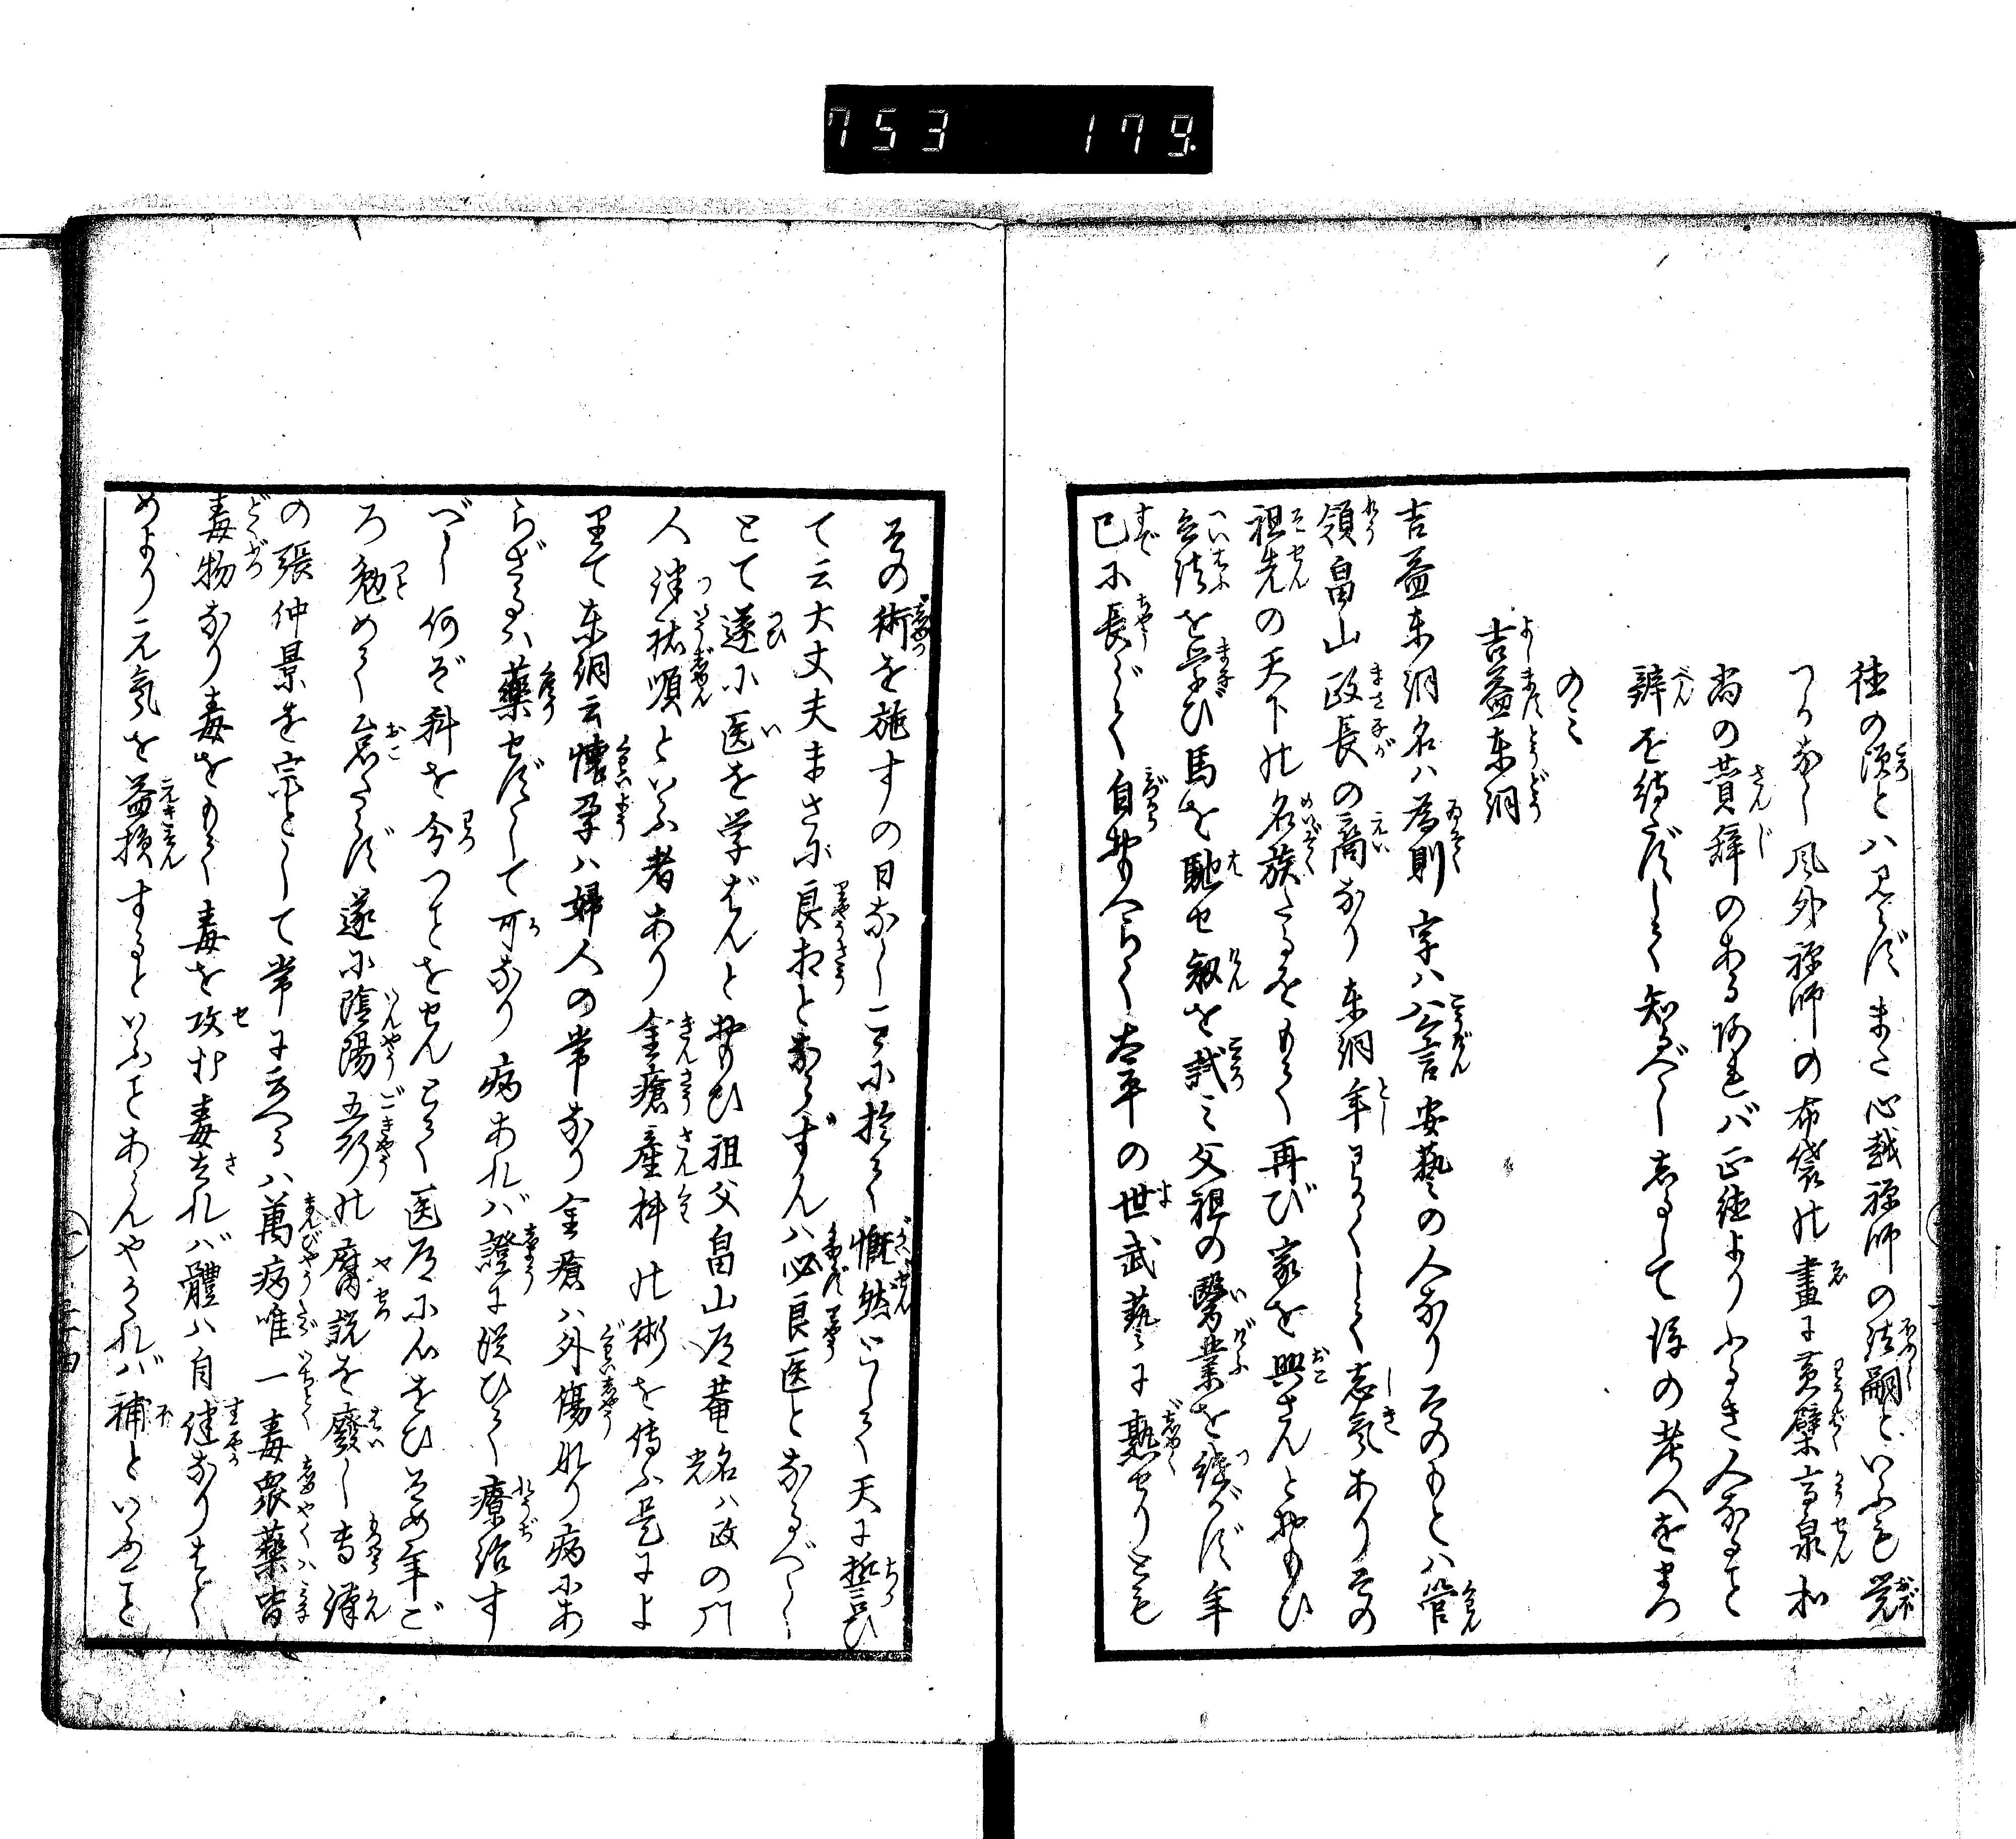 753 179.
徳の頃とハ見えずまた心越禅師の法嗣といふも覚
つかなし風外禅師の布袋の畫に黄檗高泉和
尚の賛辞のある阿れバ正徳よりふるき人なること
辨を待ずして知るべししるして後の考へをまつ
のミ
吉益東洞
吉益東洞名ハ為則字ハ公言安藝の人なりそのもとハ管
領畠山政長の裔なり東洞年わかくして志気ありその
祖先の天下の名族たるをもて再び家を興さんとおもひ
兵法を学び馬を馳せ剣を試ミ父祖の醫業を継がず年
已に長じて自おもへらく太平の世武藝に熟せりとも
その術を施すの日なしこゝに於て慨然として天に誓ひ
て云大丈夫まさに良相とならずんハ必良医となるべし
とて遂に医を学ばんとおもひ祖父畠山道菴名ハ政光の門
人津祐順といふ者あり金瘡産科の術を傳ふ是によ
りて東洞云懐孕ハ婦人の常なり金瘡ハ外傷なり病にあ
らざるハ薬せずして可なり病あれバ證に従ひて療治す
べし何ぞ科を分つことをせんとて医道に心をひそめ年ご
ろ勉めて怠らず遂に陰陽五行の腐説を廢し専漢
の張仲景を宗として常に云へるハ萬病唯一毒衆薬皆
毒物なり毒をもて毒を攻む毒去れバ體ハ自佳なりはじ
めより元気を益損するといふことあらんやされバ補といふこと